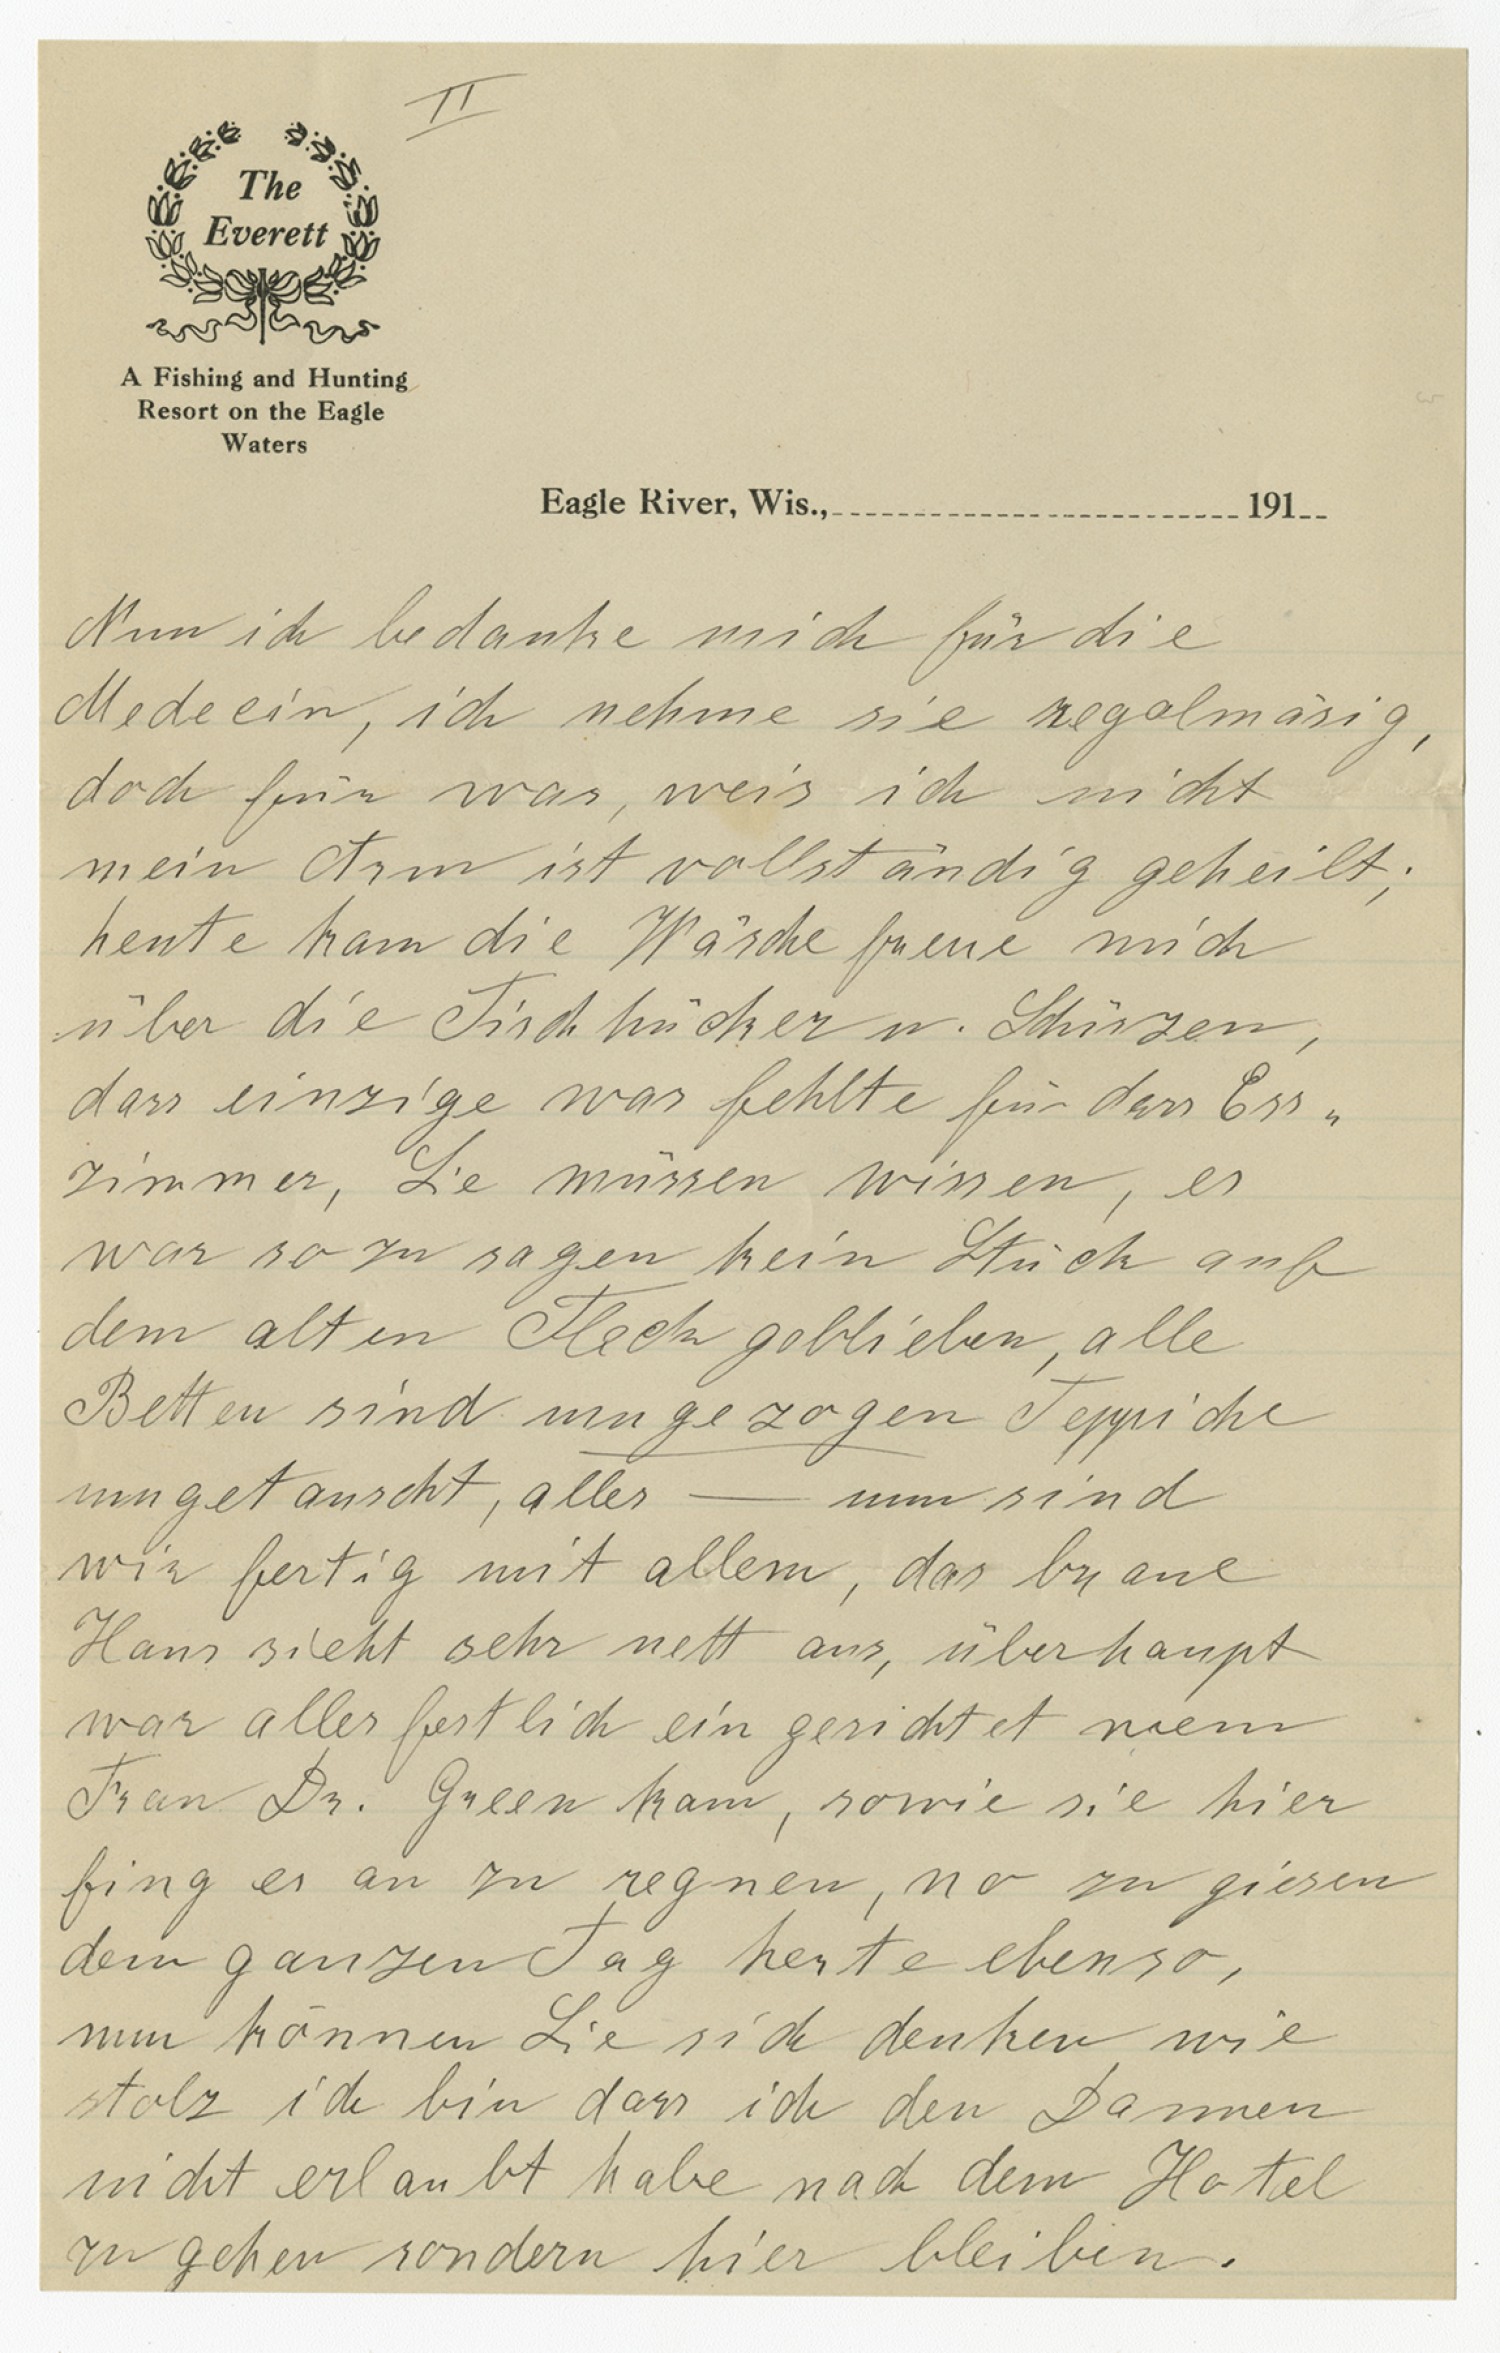 II
The
Everett
A Fishing and Hunting
Resort on the Eagle
Waters
Eagle River, Wis., 191
Nun ich bedanke mich für die
Medecin, ich nehme sie regalmäsig,
doch für was, weis ich nicht
mein Arm ist vollständig geheilt;
heute kam die Wäsche freue mich
über die Tischtücher u. Schürzen,
dass einzige was fehlte für dass Ess„
zimmer, Sie müssen wissen, es
war so zu sagen kein Stück auf
dem alten Fleck geblieben, alle
Betten sind umgezogen Teppiche
umgetauscht, alles — nun sind
wir fertig mit allem, das braue
Haus sieht sehr nett aus, überhaupt
war alles festlich ein gerichtet wenn
Frau Dr. Green kam, sowie sie hier
fing es an zu regnen, no zu giesen
dem ganzen Tag heute ebenso,
nun können Sie sich denken wie
stolz ich bin dass ich den Dammen
nicht erlaubt habe nach dem Hotel
zu gehen sondern hier bleiben.